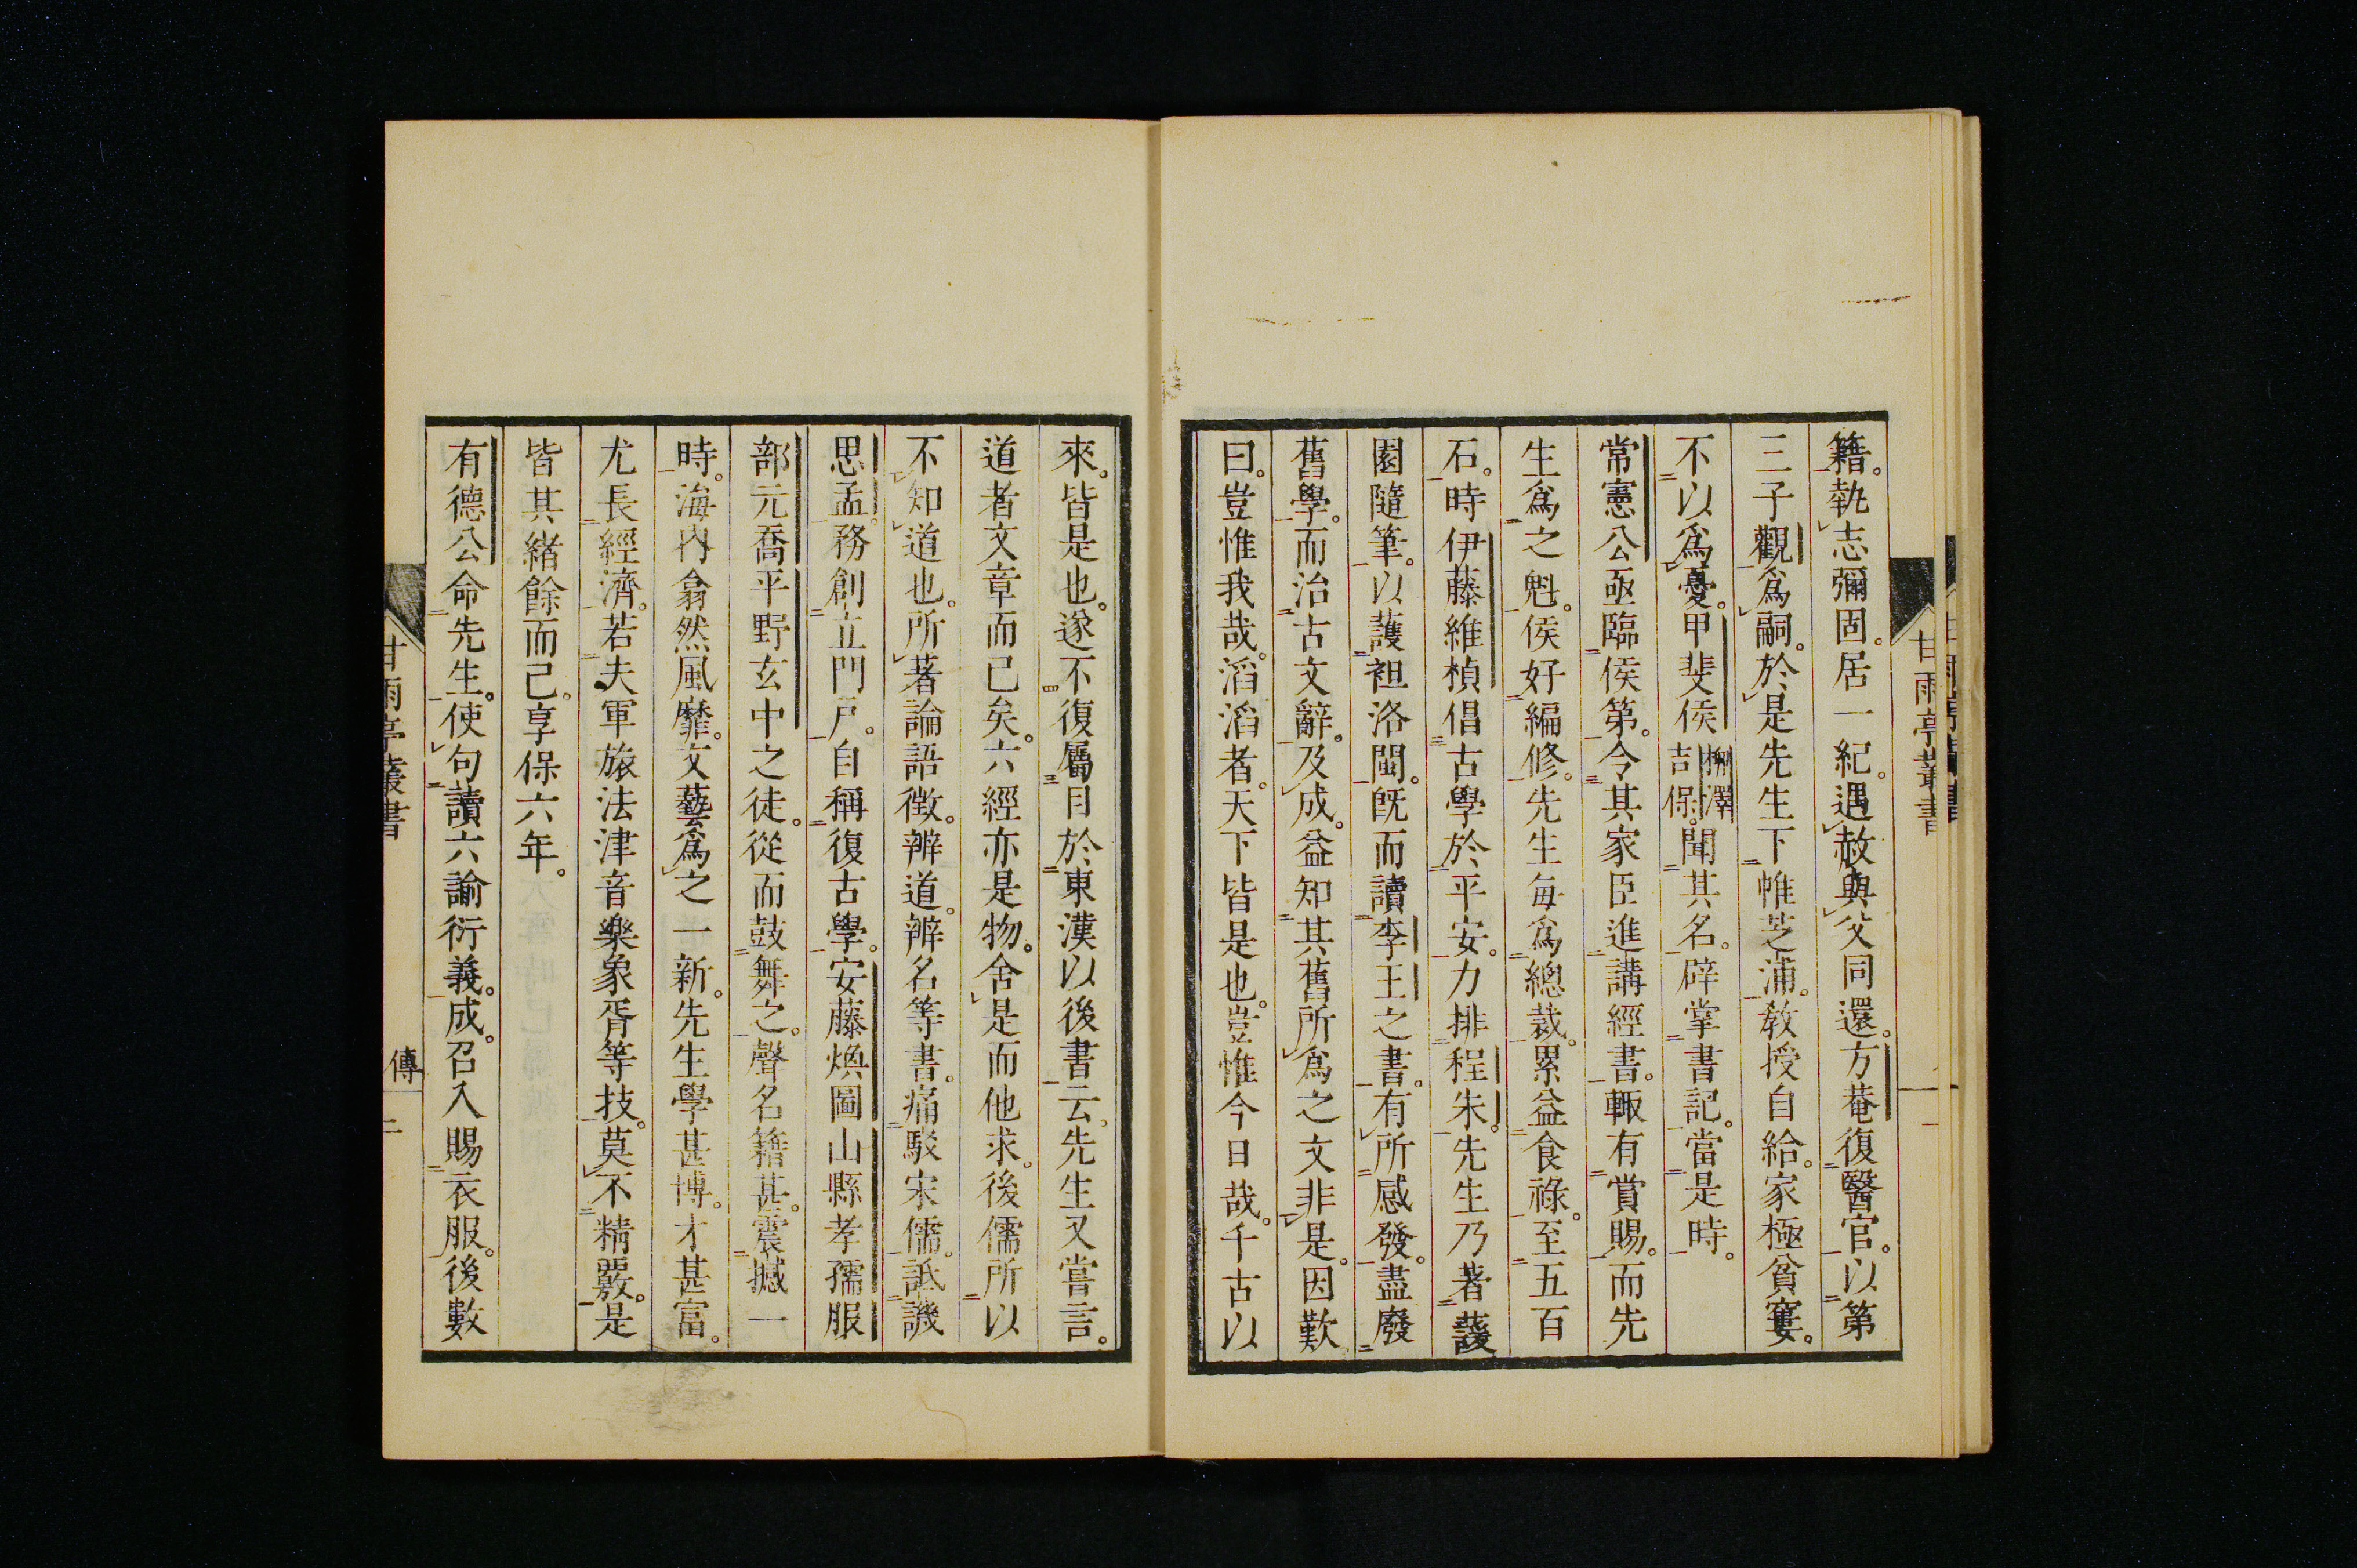 籍。執志彌固。居一紀。遇赦與父同還。方菴復醫官。以第
三子觀爲嗣。於是先生下帷芝浦。教授自給。家極貧窶。
不以爲憂。甲斐侯柳澤吉保。聞其名。辟掌書記。當是時。
常憲公亟臨侯第。令其家臣進講經書。輙有賞賜。而先
生爲之魁。侯好編修。先生每爲總裁。累益食祿。至五百
石。時伊藤維楨倡古學於平安。力排程朱。先生乃著蘐
園隨筆。以護袒洛閩。旣而讀李王之書。有所感發。盡廢
舊學。而治古文辭。及成。益知其舊所爲之文非是。因歎
曰。豈惟我哉。滔滔者。天下皆是也。豈惟今日哉。千古以
甘雨亭叢書
一
來。皆是也。遂不復屬目於東漢以後書云。先生又嘗言。
道者文章而已矣。六經亦是物。舍是而他求。後儒所以
不知道也。所著論語徵。辨道。辨名等書。痛駁宋儒。詆譏
思孟。務創立門戸。自稱復古學。安藤煥圖山縣孝孺服
部元喬平野玄中之徒。從而鼓舞之。聲名籍甚。震撼一
時。海內翕然風靡。文藝爲之一新。先生學甚博。才甚富。
尤長經濟。若夫軍旅法津音樂象胥等技。莫不精覈。是
皆其緒餘而已。享保六年。
有德公命先生。使句讀六諭衍義。成。召入賜衣服。後數
甘雨亭叢書
傳
二